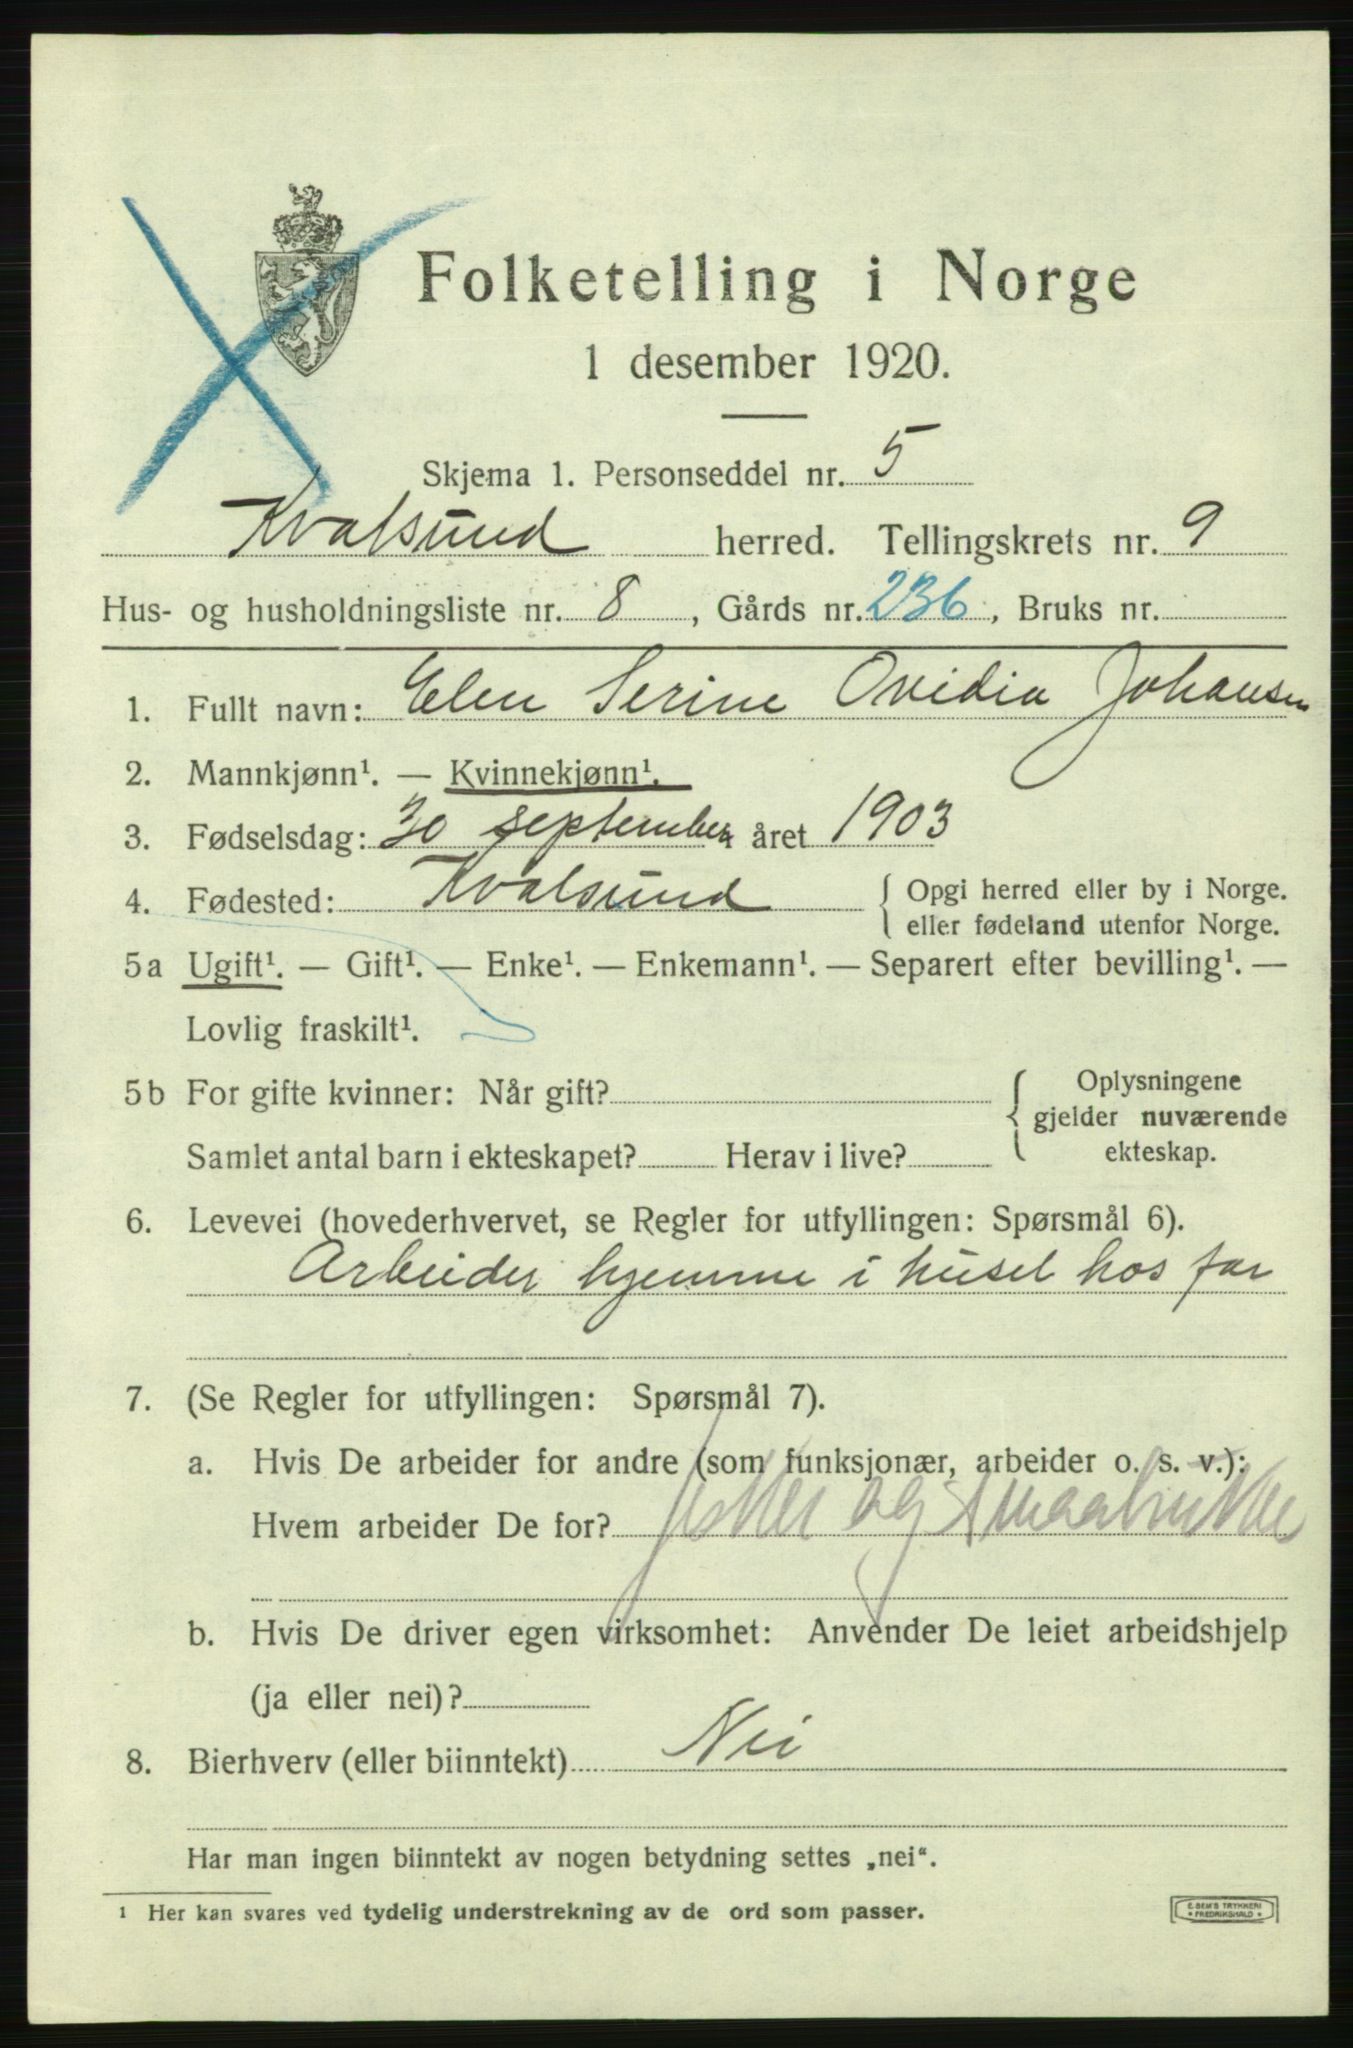 Folketelling i Norge
1 desember 1920.
Skjema 1. Personseddel nr. 5
Kvalsund herred. Tellingskrets nr. 9
Hus- og husholdningsliste nr. 8, Gårds nr. 236, Bruks nr.
1. Fullt navn: Elen Serine Ovidia Johansen
2. Mannkjønn¹. — Kvinnekjønn¹.
3. Fødselsdag: 30 september året 1903
4. Fødested: Kvalsund { Opgi herred eller by i Norge.
eller fødeland utenfor Norge.
5a Ugift¹. — Gift¹. — Enke¹. — Enkemann¹. — Separert efter bevilling¹. —
Lovlig fraskilt¹.
5b For gifte kvinner: Når gift? { Oplysningene
gjelder nuværende
Samlet antal barn i ekteskapet? Herav i live? ekteskap.
6. Levevei (hovederhvervet, se Regler for utfyllingen: Spørsmål 6).
Arbeider hjemme i huset hos far
7. (Se Regler for utfyllingen: Spørsmål 7).
a. Hvis De arbeider for andre (som funksjonær, arbeider o. s. v.):
Hvem arbeider De for? fisker og smaabruker
b. Hvis De driver egen virksomhet: Anvender De leiet arbeidshjelp
(ja eller nei)?
8. Bierhverv (eller biinntekt) Nei
Har man ingen biinntekt av nogen betydning settes „nei".
¹ Her kan svares ved tydelig understrekning av de ord som passer.
E. SEM'S TRYKKERI
* FREDRIKSHALD *